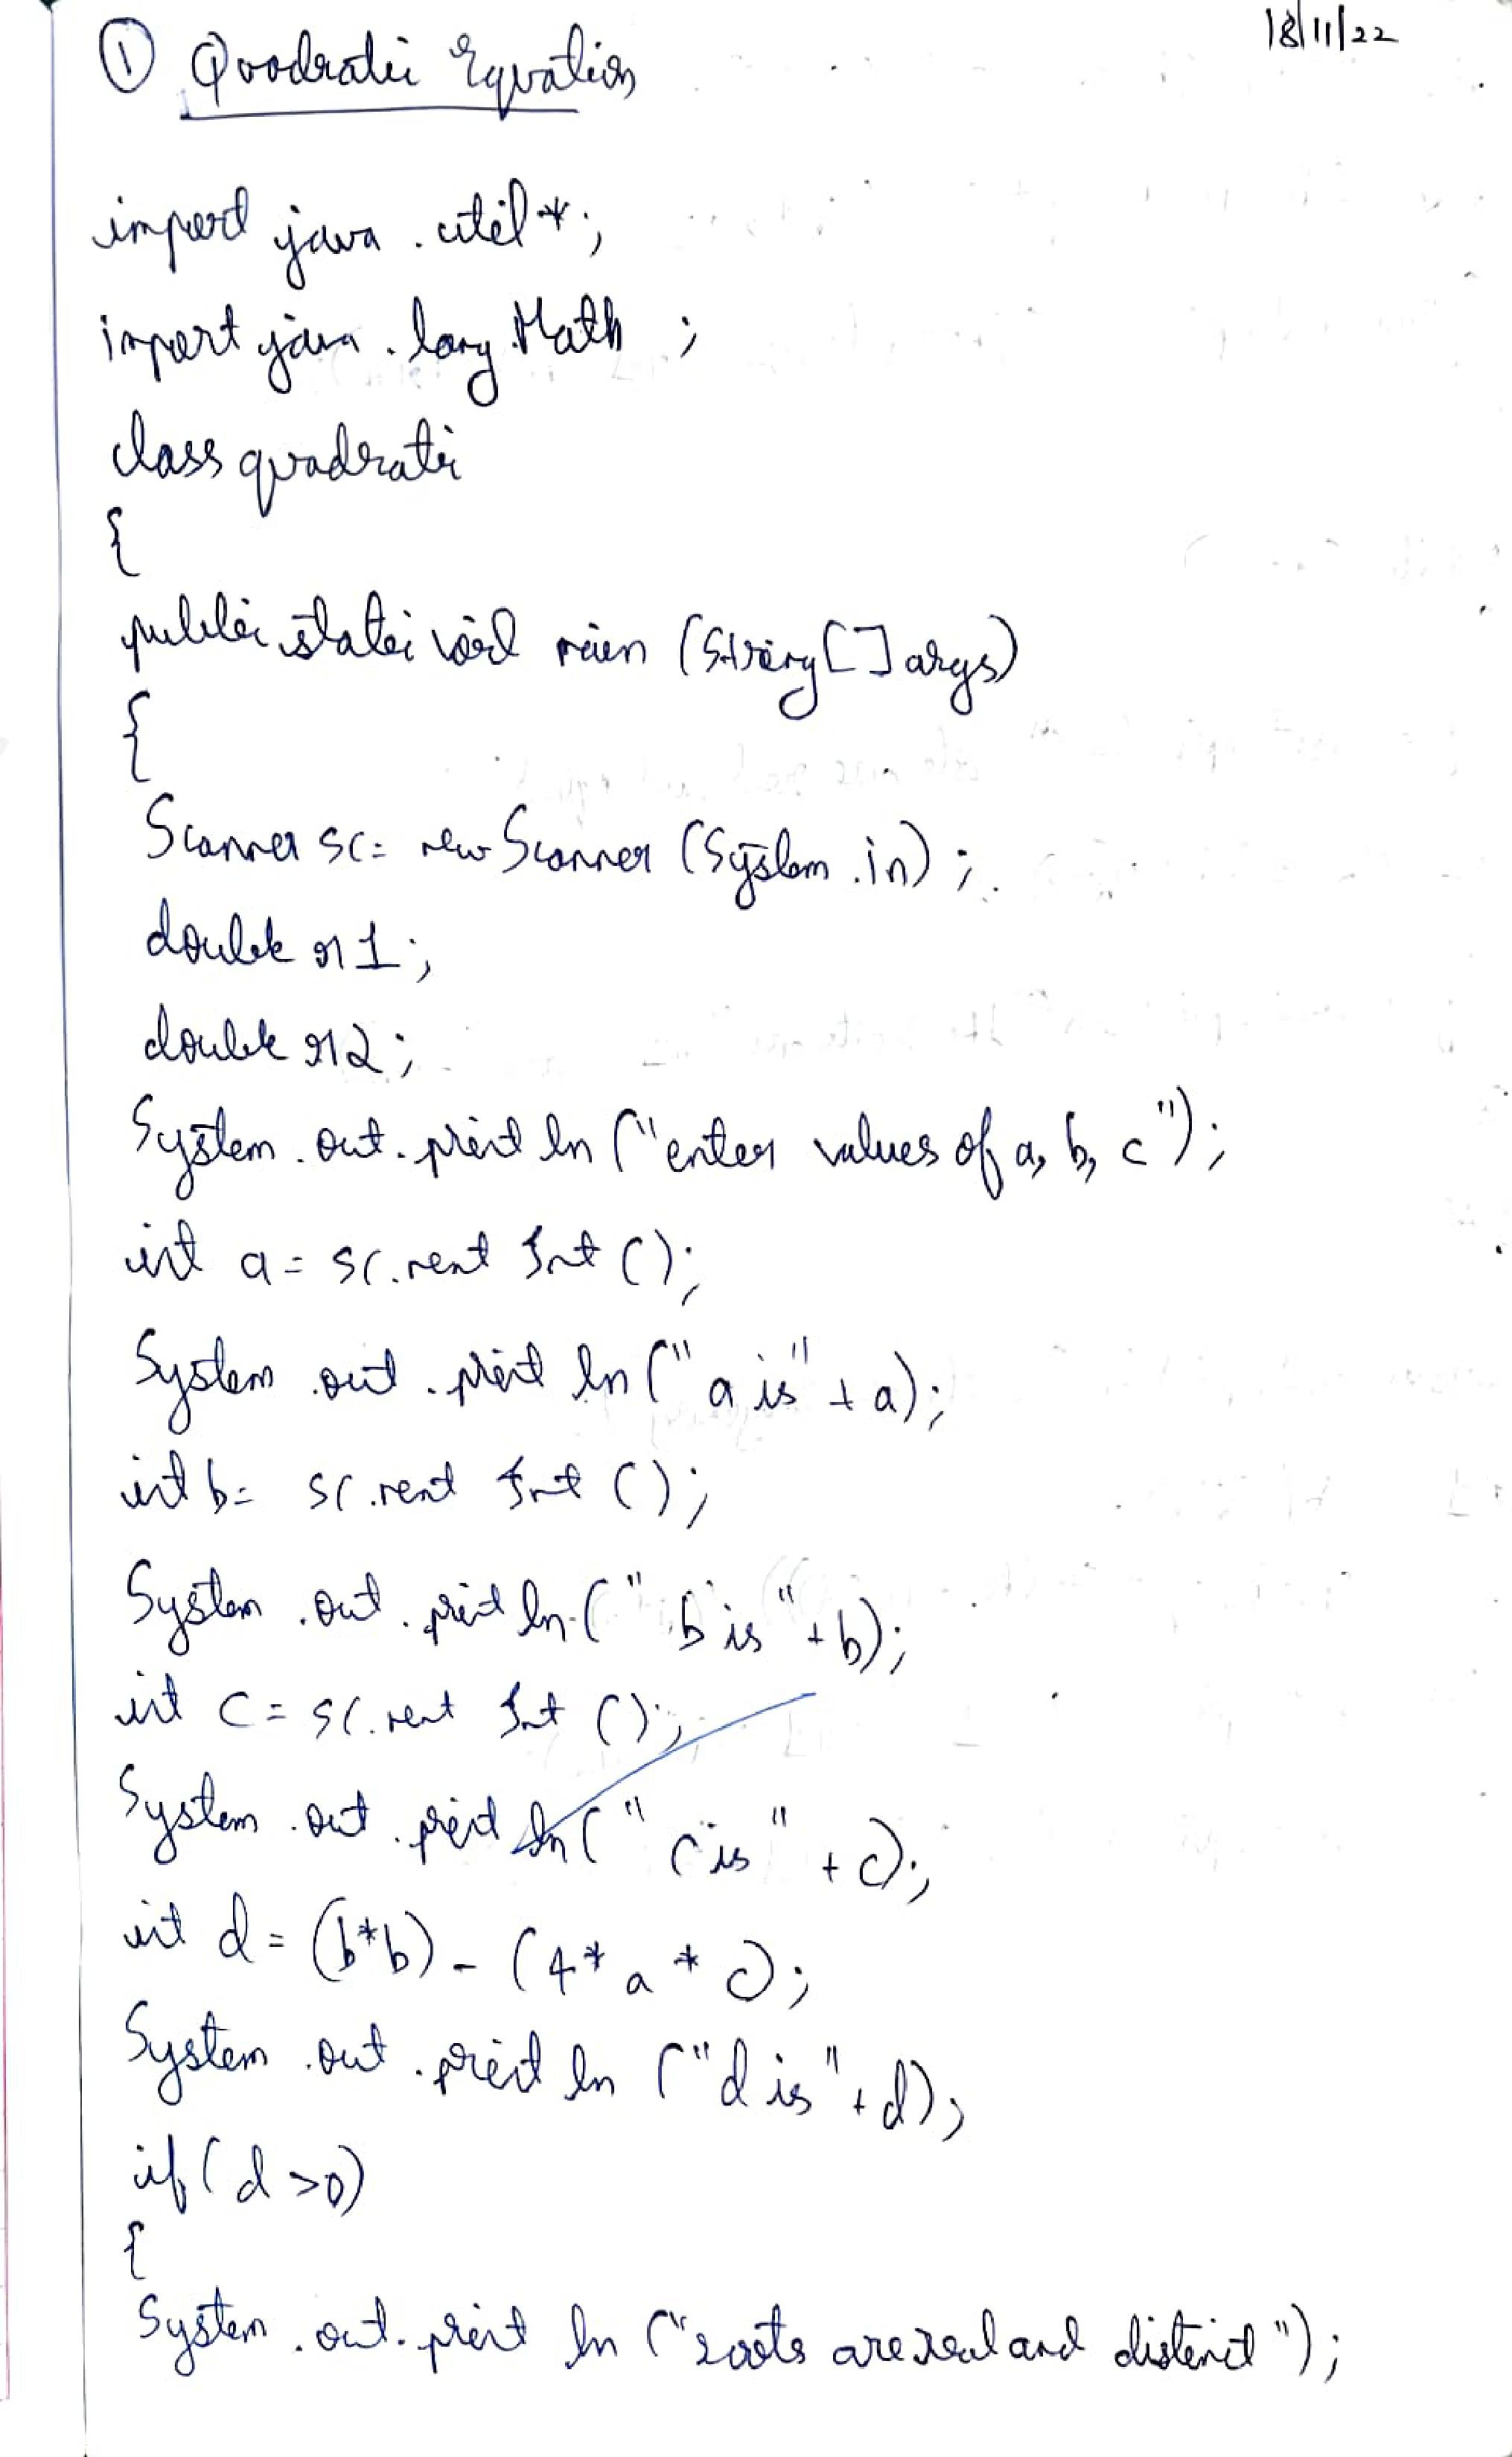 ① Quadratic Equation 18/11/22
import java.util*;
import java.lang.Math;
class quadratic
{
public static void main (String[] args)
{
Scanner sc= new Scanner (System.in);
double r1;
double r2;
System.out.println ("enter values of a, b, c");
int a = sc.next Int ();
System.out.println ("a is" + a);
int b= sc.next Int ();
System.out.println ("b is" + b);
int c = sc.next Int ();
System.out.println ("c is" + c);
int d = (b*b) - (4* a * c);
System.out.println ("d is" + d);
if (d >0)
{
System.out.println ("roots are real and distinct");